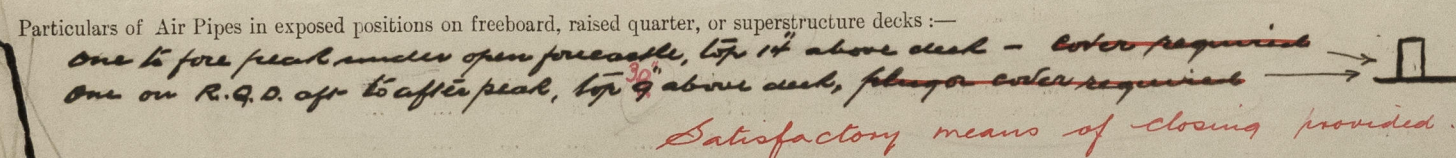 Particulars of Air Pipes in exposed positions on freeboard, raised quarter, or superstructure decks :—
One to fore peak under open forecastle, top 14" above deck - cover required
One on R.Q.D. aft to after peak, top 30" 9" above deck, plug or cover required
Satisfactory means of closing provided.